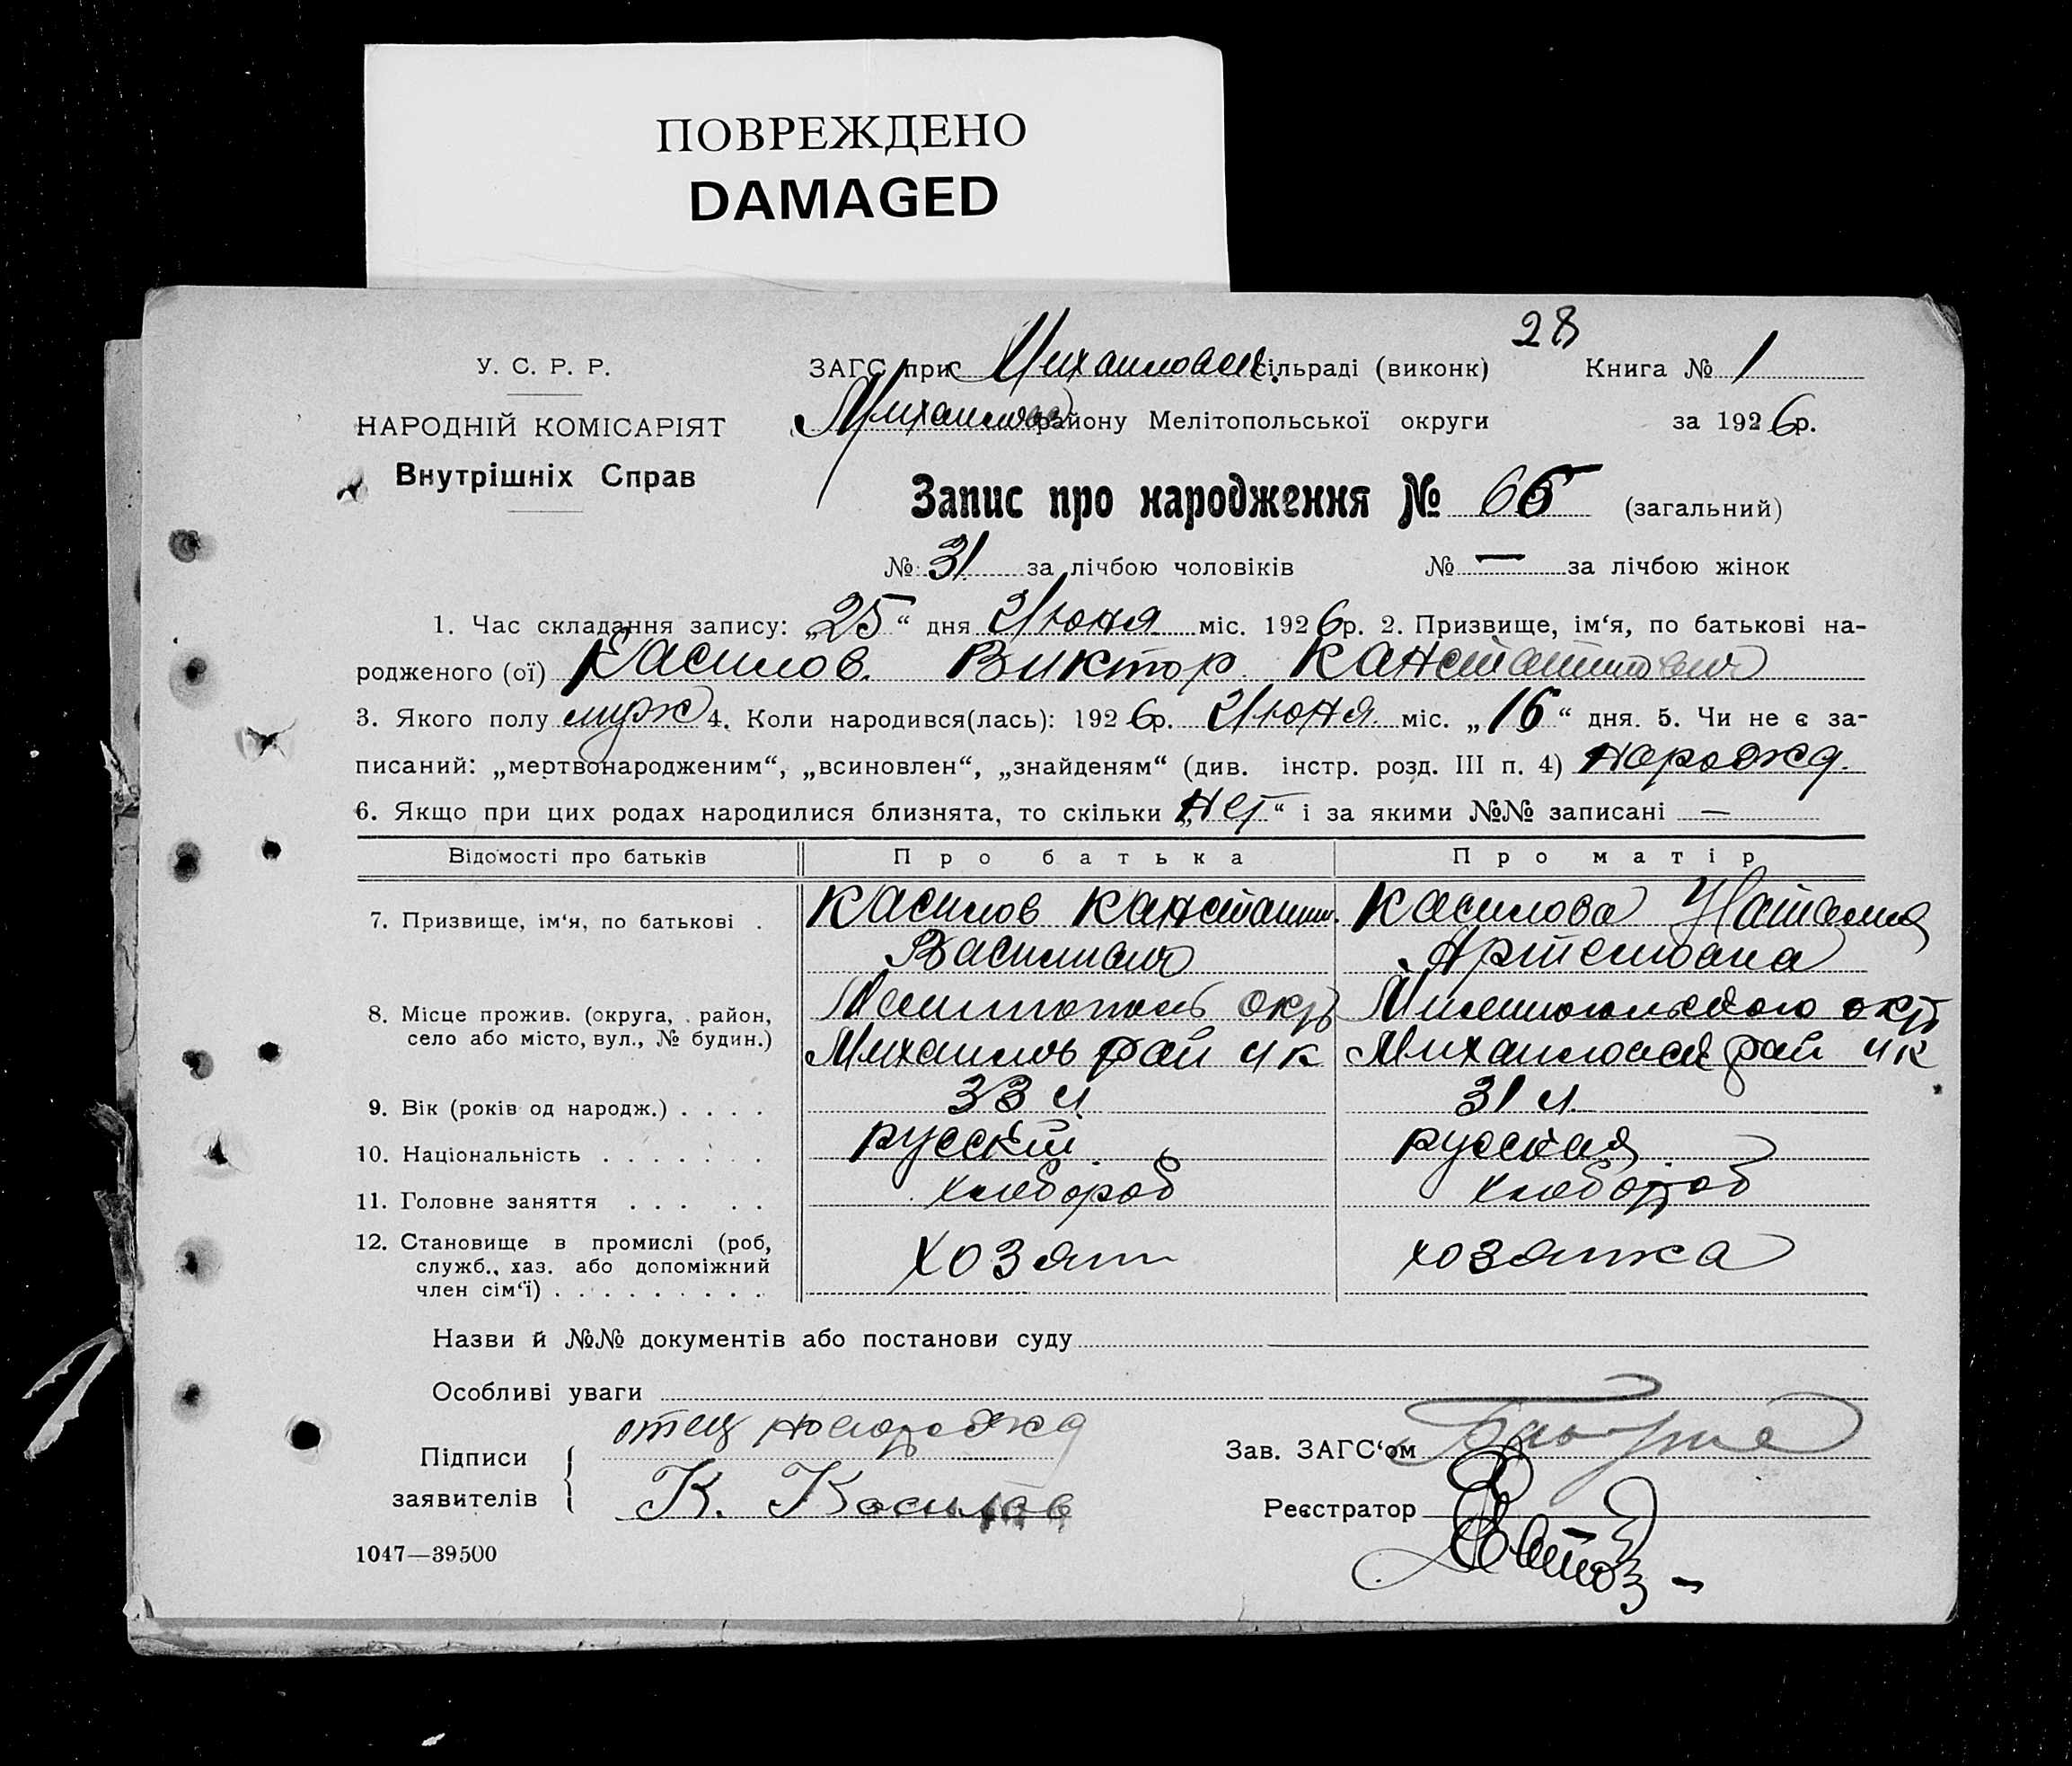 ПОВРЕЖДЕНО
DAMAGED
28
У. С. Р. Р.
НАРОДНІЙ КОМІСАРІЯТ
Внутрішніх Справ
ЗАГС при Михайловск. сільраді (виконк) Книга № 1
Михайловс району Мелітопольської округи за 1926р.
Запис про народження № 65 (загальний)
№ 31 за лічбою чоловіків № — за лічбою жінок
1. Час складання запису: „25“ дня Июня міс. 1926р. 2. Призвище, ім‘я, по батькові на-
родженого (ої) Касилов. Виктор Канстантинович
3. Якого полу муж 4. Коли народився(лась): 1926р. Июня міс. „16“ дня. 5. Чи не є за-
писаний: „мертвонародженим“, „всиновлен“, „знайденям“ (див. інстр. розд. III п. 4) народжд.
6. Якщо при цих родах народилися близнята, то скільки „нет“ і за якими №№ записані —
Відомості про батьків Про батька Про матір
7. Призвище, ім‘я, по батькові . Касилов Канстантин. Касилова Наталия
Василивич Артемовна
8. Місце прожив. (округа, район, село або місто, вул., № будин.) Мелитополь окр
Михайловь рай ик Михайловск рай ик
9. Вік (років од народж.) . . . . 33 л 31 л.
10. Національність . . . . . . . русский. русская
11. Головне заняття . . . . . хлебороб хлебороб
12. Становище в промислі (роб, служб., хаз. або допоміжний член сім‘ї) . . . . . . . . . . хозяин хозяика
Назви й №№ документів або постанови суду
Особливі уваги
отец
Підписи заявителів К. Касилов
Зав. ЗАГС‘ом
Реєстратор
1047—39500